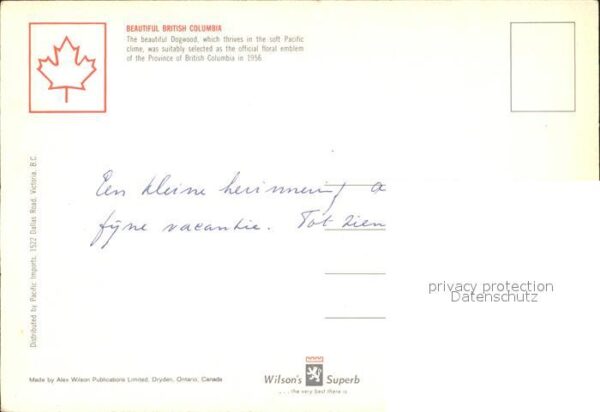 BEAUTIFUL BRITISH COLUMBIA
The beautiful Dogwood, which thrives in the soft Pacific
clime, was suitably selected as the official floral emblem
of the Province of British Columbia in 1956
Distributed by Pacific Imports, 1522 Dallas Road, Victoria, B.C
Een kleine herinnering a
fijne vacantie. Tot zien
privacy protection
Datenschutz
Made by Alex Wilson Publications Limited, Dryden, Ontario, Canada
Wilson's Superb
. . . the very best there is